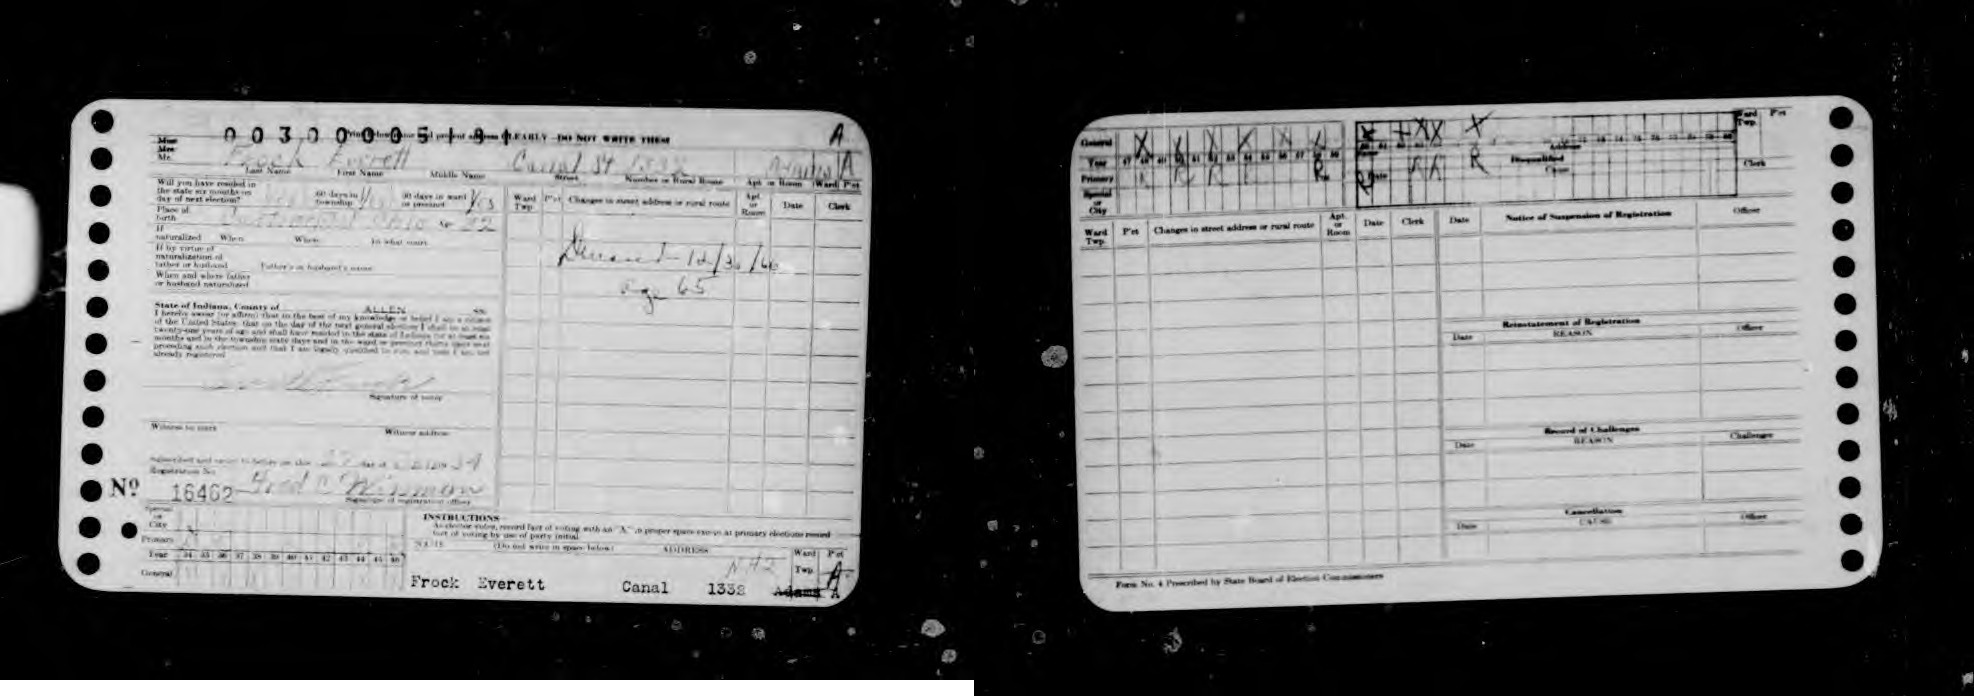 003000005191
Print below name and present address CLEARLY—DO NOT WRITE THEM
A
Miss
Mrs.
Mr. Frock Everett Canal St 1332 A
Last Name First Name Middle Name Street Number or Rural Route Apt. or Room Ward P'ct
Will you have resided in
the state six months on
day of next election?
60 days in
township
30 days in ward
or precinct Yes
Ward
Twp. P'ct Changes in street address or rural route Apt.
or
Room Date Clerk
Place of
birth Ohio
If
naturalized When Where In what court
If by virtue of
naturalization of
father or husband Father's or husband's name
When and where father
or husband naturalized
Deceased 12/30/60
age 65
State of Indiana, County of ALLEN SS:
I hereby swear (or affirm) that to the best of my knowledge or belief I am a citizen
of the United States; that on the day of the next general election I shall be at least
twenty-one years of age and shall have resided in the state of Indiana for at least six
months and in the township sixty days and in the ward or precinct thirty days next
preceding such election and that I am legally qualified to vote and that I am not
already registered
Everett Frock
Signature of voter
Witness to mark Witness address
Subscribed and sworn to before me this day of 19 34
Registration No.
Nº 16462 Fred C Wissman
Signature of registration officer
Special
or
City
Primary
Year 34 35 36 37 38 39 40 41 42 43 44 45 46
General
INSTRUCTIONS—
As elector votes, record fact of voting with an "X" in proper space except at primary elections record
fact of voting by use of party initial
NAME (Do not write in space below) ADDRESS Ward
Twp. P'ct
Frock Everett Canal 1332 Adams A
General X X X X X X X X X X X
Year 47 48 49 50 51 52 53 54 55 56 57 58 59
Primary R R R R R R R
Special
or
City
Name Address Date Disqualified Cause
Ward
Twp. P'ct
Clerk
Ward
Twp. P'ct Changes in street address or rural route Apt.
or
Room Date Clerk
Date Notice of Suspension of Registration Officer
Reinstatement of Registration
Date REASON Officer
Record of Challenges
Date REASON Challenger
Cancellation
Date CAUSE Officer
Form No. 4 Prescribed by State Board of Election Commissioners